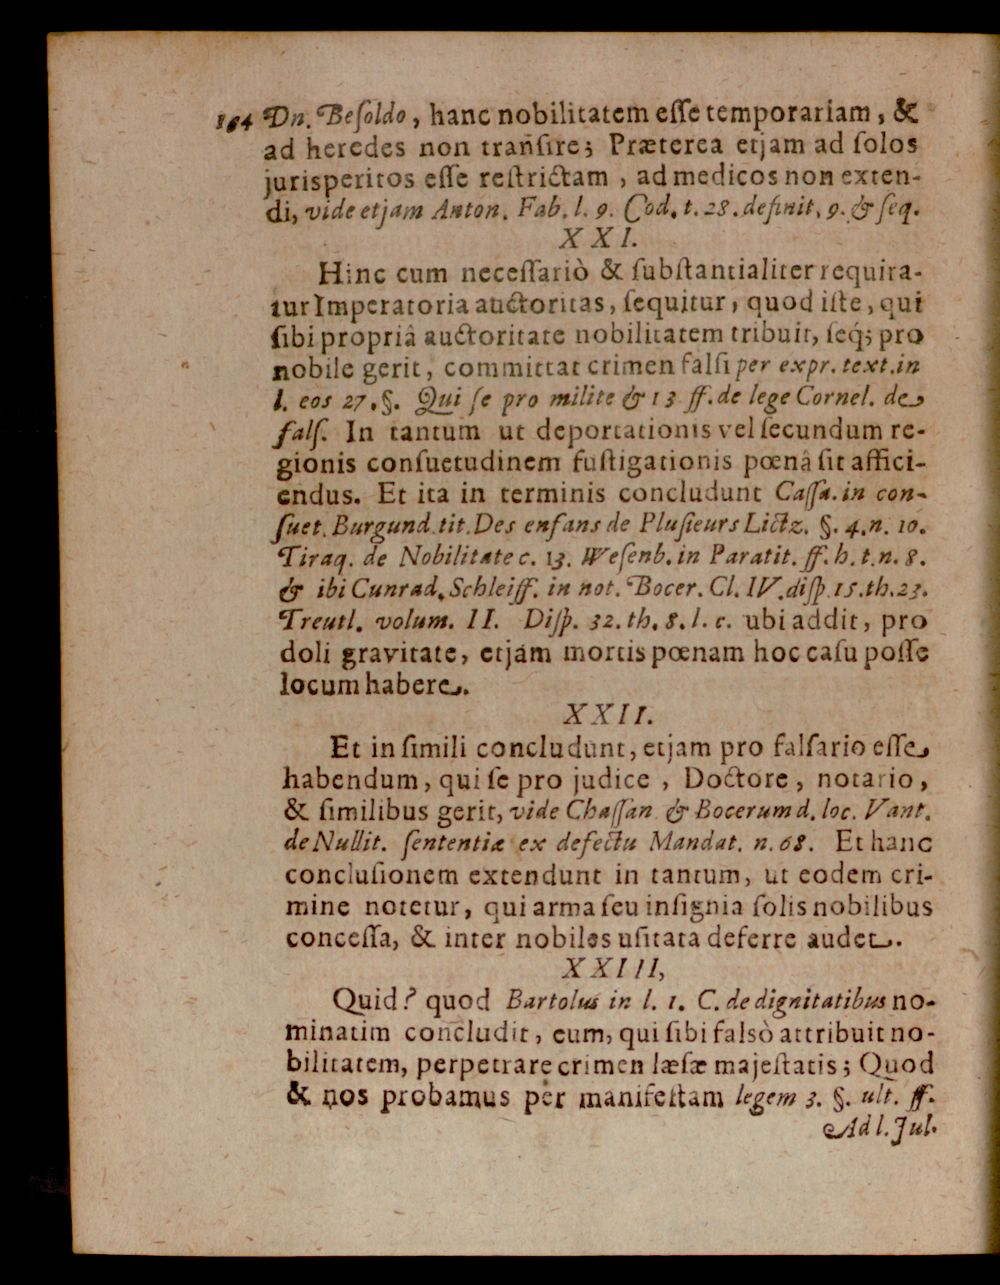 184 Dn. Beſoldo, hanc nobilitatem eſſe temporariam, &
ad heredes non tranſire; Præterea etjam ad ſolos
jurisperitos eſſe reſtrictam, ad medicos non exten-
di, vide etjam Anton. Fab. l. 9. Cod. t. 28. definit. 9. & ſeq.
XXI.
Hinc cum neceſſariò & ſubſtantialiter requira-
tur Imperatoria auctoritas, ſequitur, quod iſte, qui
ſibi propriâ auctoritate nobilitatem tribuit, ſeq́; pro
nobile gerit, committat crimen falſi per expr. text. in
l. eos 27. §. Qui ſe pro milite & 13 ff. de lege Cornel. de
falſ. In tantum ut deportationis vel ſecundum re-
gionis conſuetudinem fuſtigationis pœnâ ſit affici-
endus. Et ita in terminis concludunt Caſſa. in con-
ſuet. Burgund. tit. Des enfans de Pluſieurs Lictz. §. 4. n. 10.
Tiraq. de Nobilitate c. 13. Weſenb. in Paratit. ff. h. t. n. 8.
& ibi Cunrad. Schleiff. in not. Bocer. Cl. IV. diſp. 15. th. 23.
Treutl. volum. II. Diſp. 32. th. 8. l. c. ubi addit, pro
doli gravitate, etjam mortis pœnam hoc caſu poſſe
locum habere.
XXII.
Et in ſimili concludunt, etjam pro falſario eſſe
habendum, qui ſe pro judice, Doctore, notario,
& ſimilibus gerit, vide Chaſſan. & Bocerum d. loc. Vant.
de Nullit. ſententiæ ex defectu Mandat. n. 68. Et hanc
concluſionem extendunt in tantum, ut eodem cri-
mine notetur, qui arma ſeu inſignia ſolis nobilibus
conceſſa, & inter nobiles uſitata deferre audet.
XXIII,
Quid? quod Bartolus in l. 1. C. de dignitatibus no-
minatim concludit, eum, qui ſibi falsò attribuit no-
bilitatem, perpetrare crimen læſæ majeſtatis; Quod
& nos probamus per manifeſtam legem 3. §. ult. ff.
Ad l. Jul.